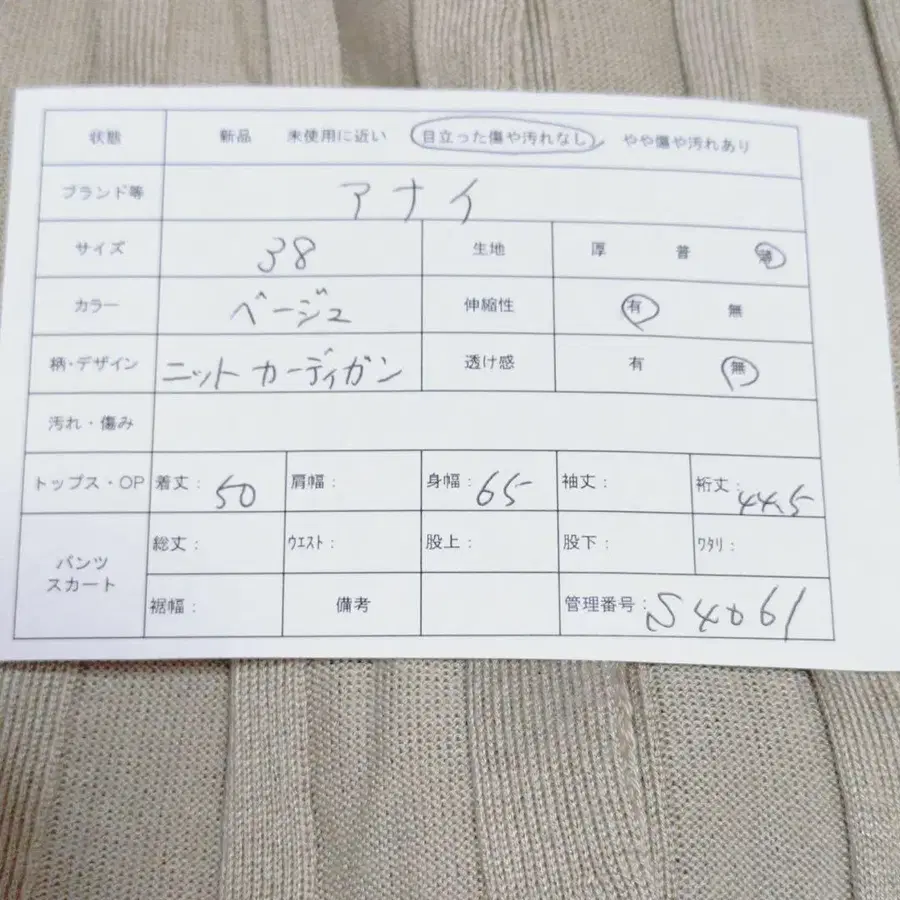 状態 新品 未使用に近い 目立った傷や汚れなし やや傷や汚れあり
ブランド等 アナイ
サイズ 38 生地 厚 普 薄
カラー ベージュ 伸縮性 有 無
柄・デザイン ニットカーディガン 透け感 有 無
汚れ・傷み
トップス・OP 着丈: 50 肩幅: 身幅: 65 袖丈: 裄丈: 44.5
パンツ スカート 総丈: ウエスト: 股上: 股下: ワタリ:
裾幅: 備考 管理番号: S4061